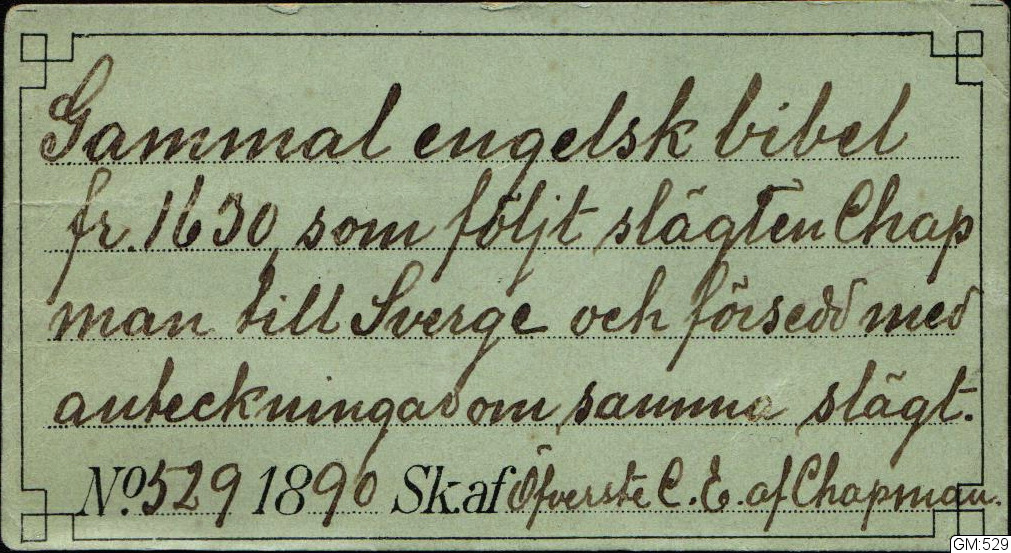 Gammal engelsk bibel
fr. 1630 som följt slägten Chap
man till Sverge och försedd med
anteckningar om samma slägt.
No. 529 1890 Sk. af Öfverste C. E. af Chapman.
GM:529